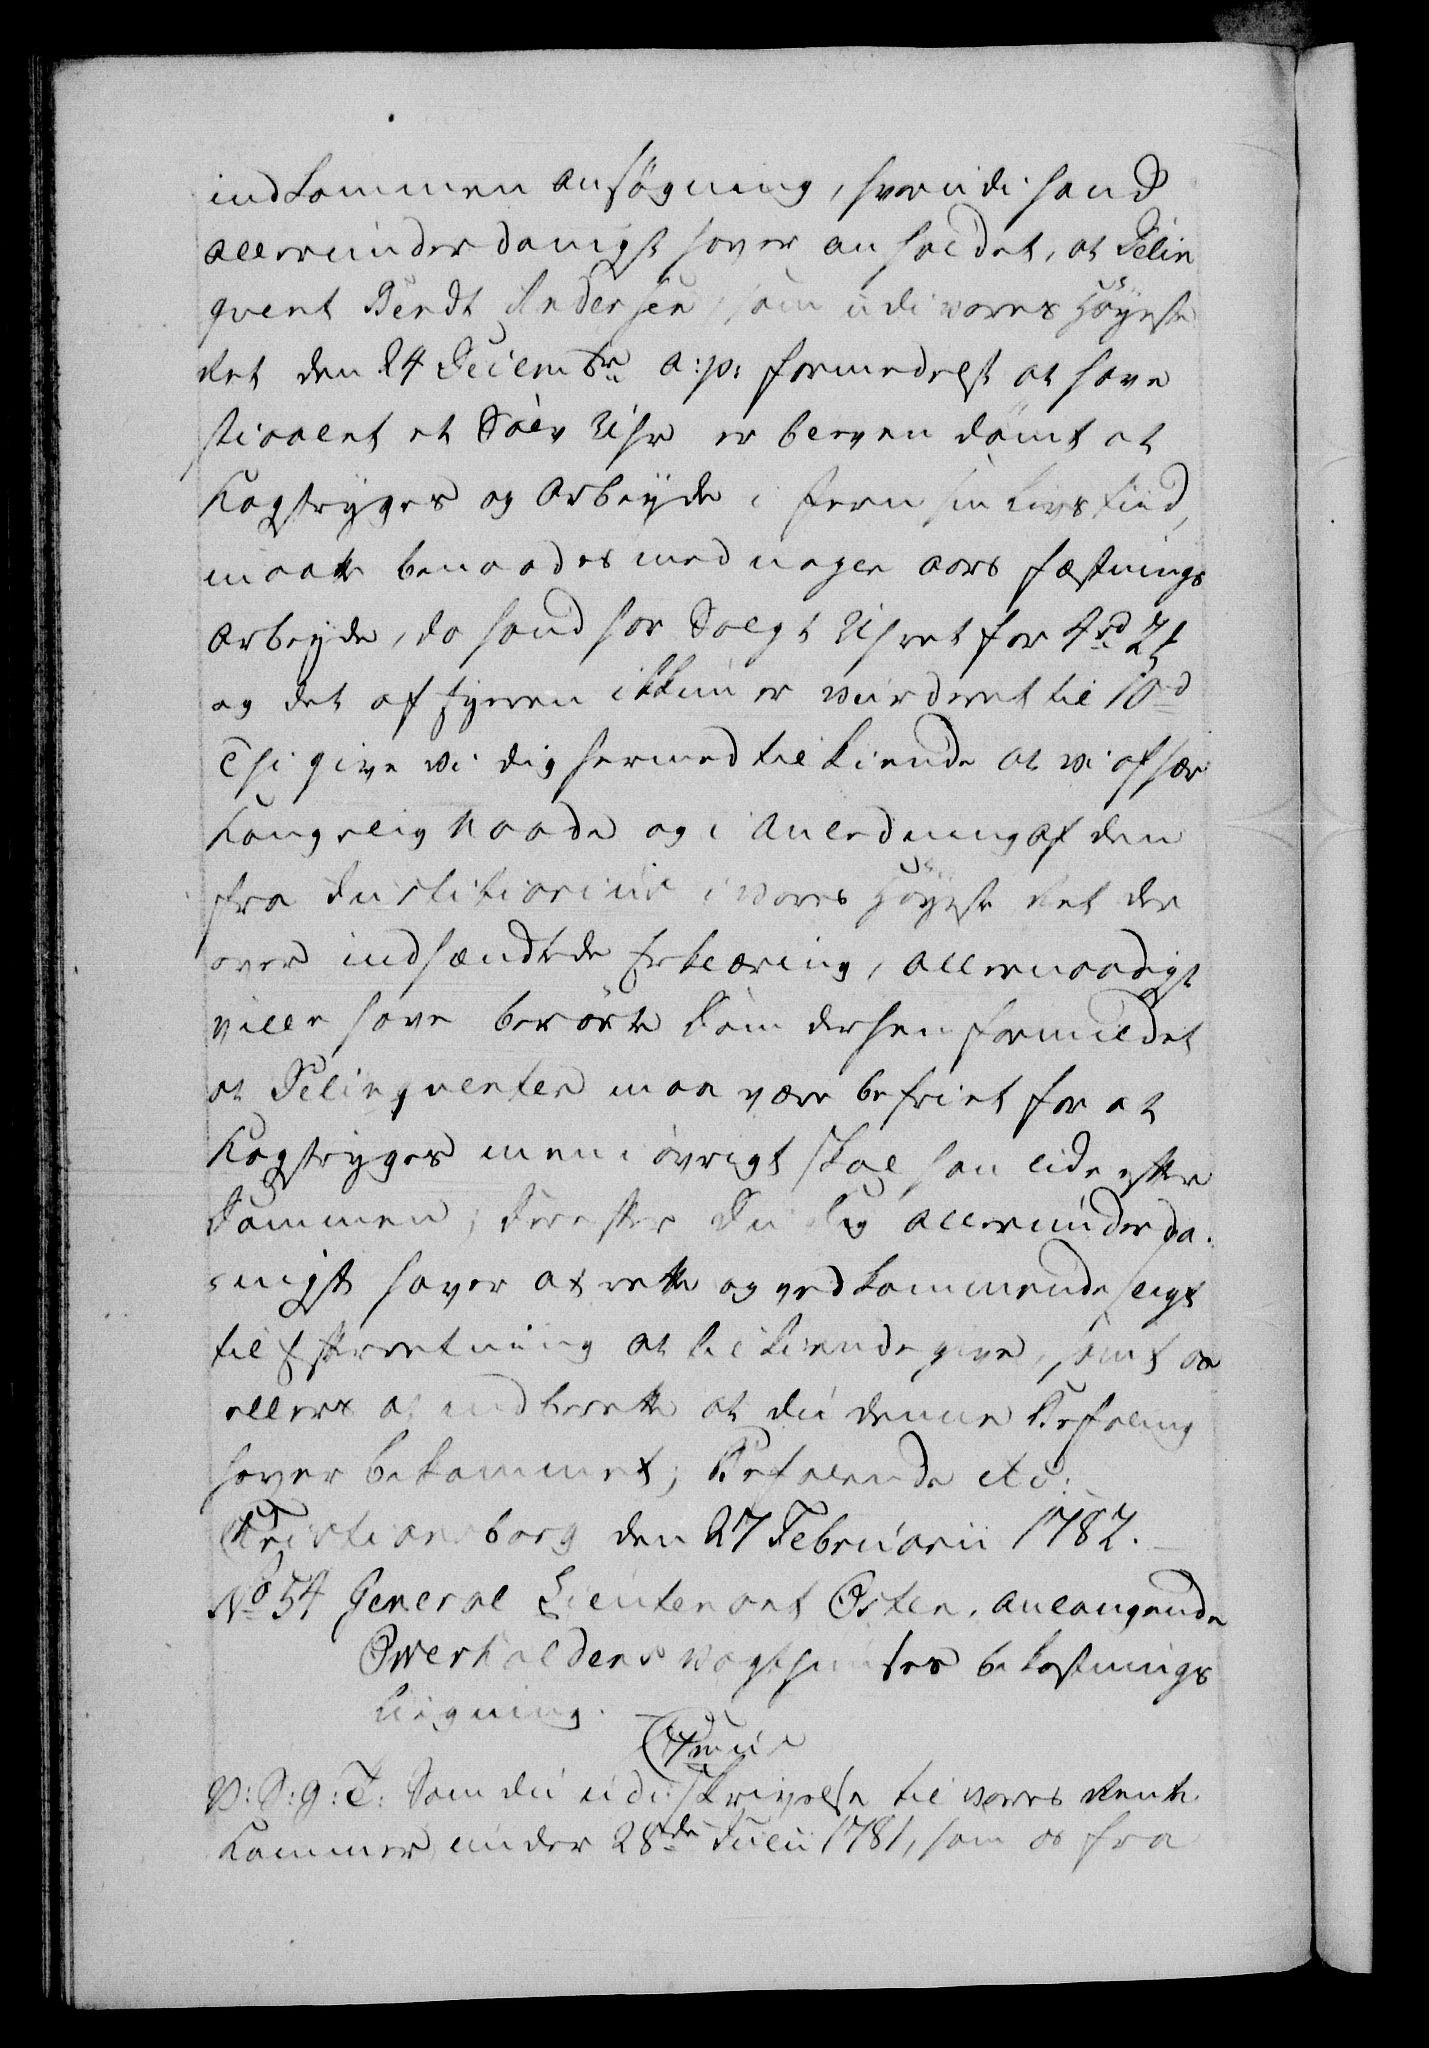 indkommen ansögning, hvorudi hand
allerunderdanigst haver anholdet, at Delin
qvent Berdt Andersen, som udi vores Höyeste
Ret den 24 Decembr a: p: formedelst at have
stiaalet et Sölv Uhr er bleven dömt at
Kagstryges og Arbeyde i Jern sin Livs tiid,
maatte benaades med nogen aars Fæstnings
Arbeyde, da hand har Solgt Uhret for 4rd 2
og det af Eyeren ikkun er vurderet til 10rd
Thi give vi dig hermed tilkiende at vi af sær
Kongelig Naade og i Anledning af den
fra Justitiarius i vores Höyeste Ret der
over indsændte Erklæring, allernaadigst
ville have berörte Dom derhen formildet
at Delinqventen maa være befriet for at
Kagstryges men i övrigt skal han lide efter
Dommen; Derefter Du dig allerunderda-
nigst haver at rette og vedkommende sligt
til Efterretning at tilkiende give, samt os
ellers at indberette at du denne Befaling
haver bekommet; Befalende etc:
Christiansborg den 27 Februarii 1782.
No 54 General Lieutenant Osten, anlangende
Overhaldens Vagthuuses bekostnings
Ligning.
V: S: G: T: Som du udi Skrivelse til vores Rente
Kammer under 28de Julii 1781, som os fra